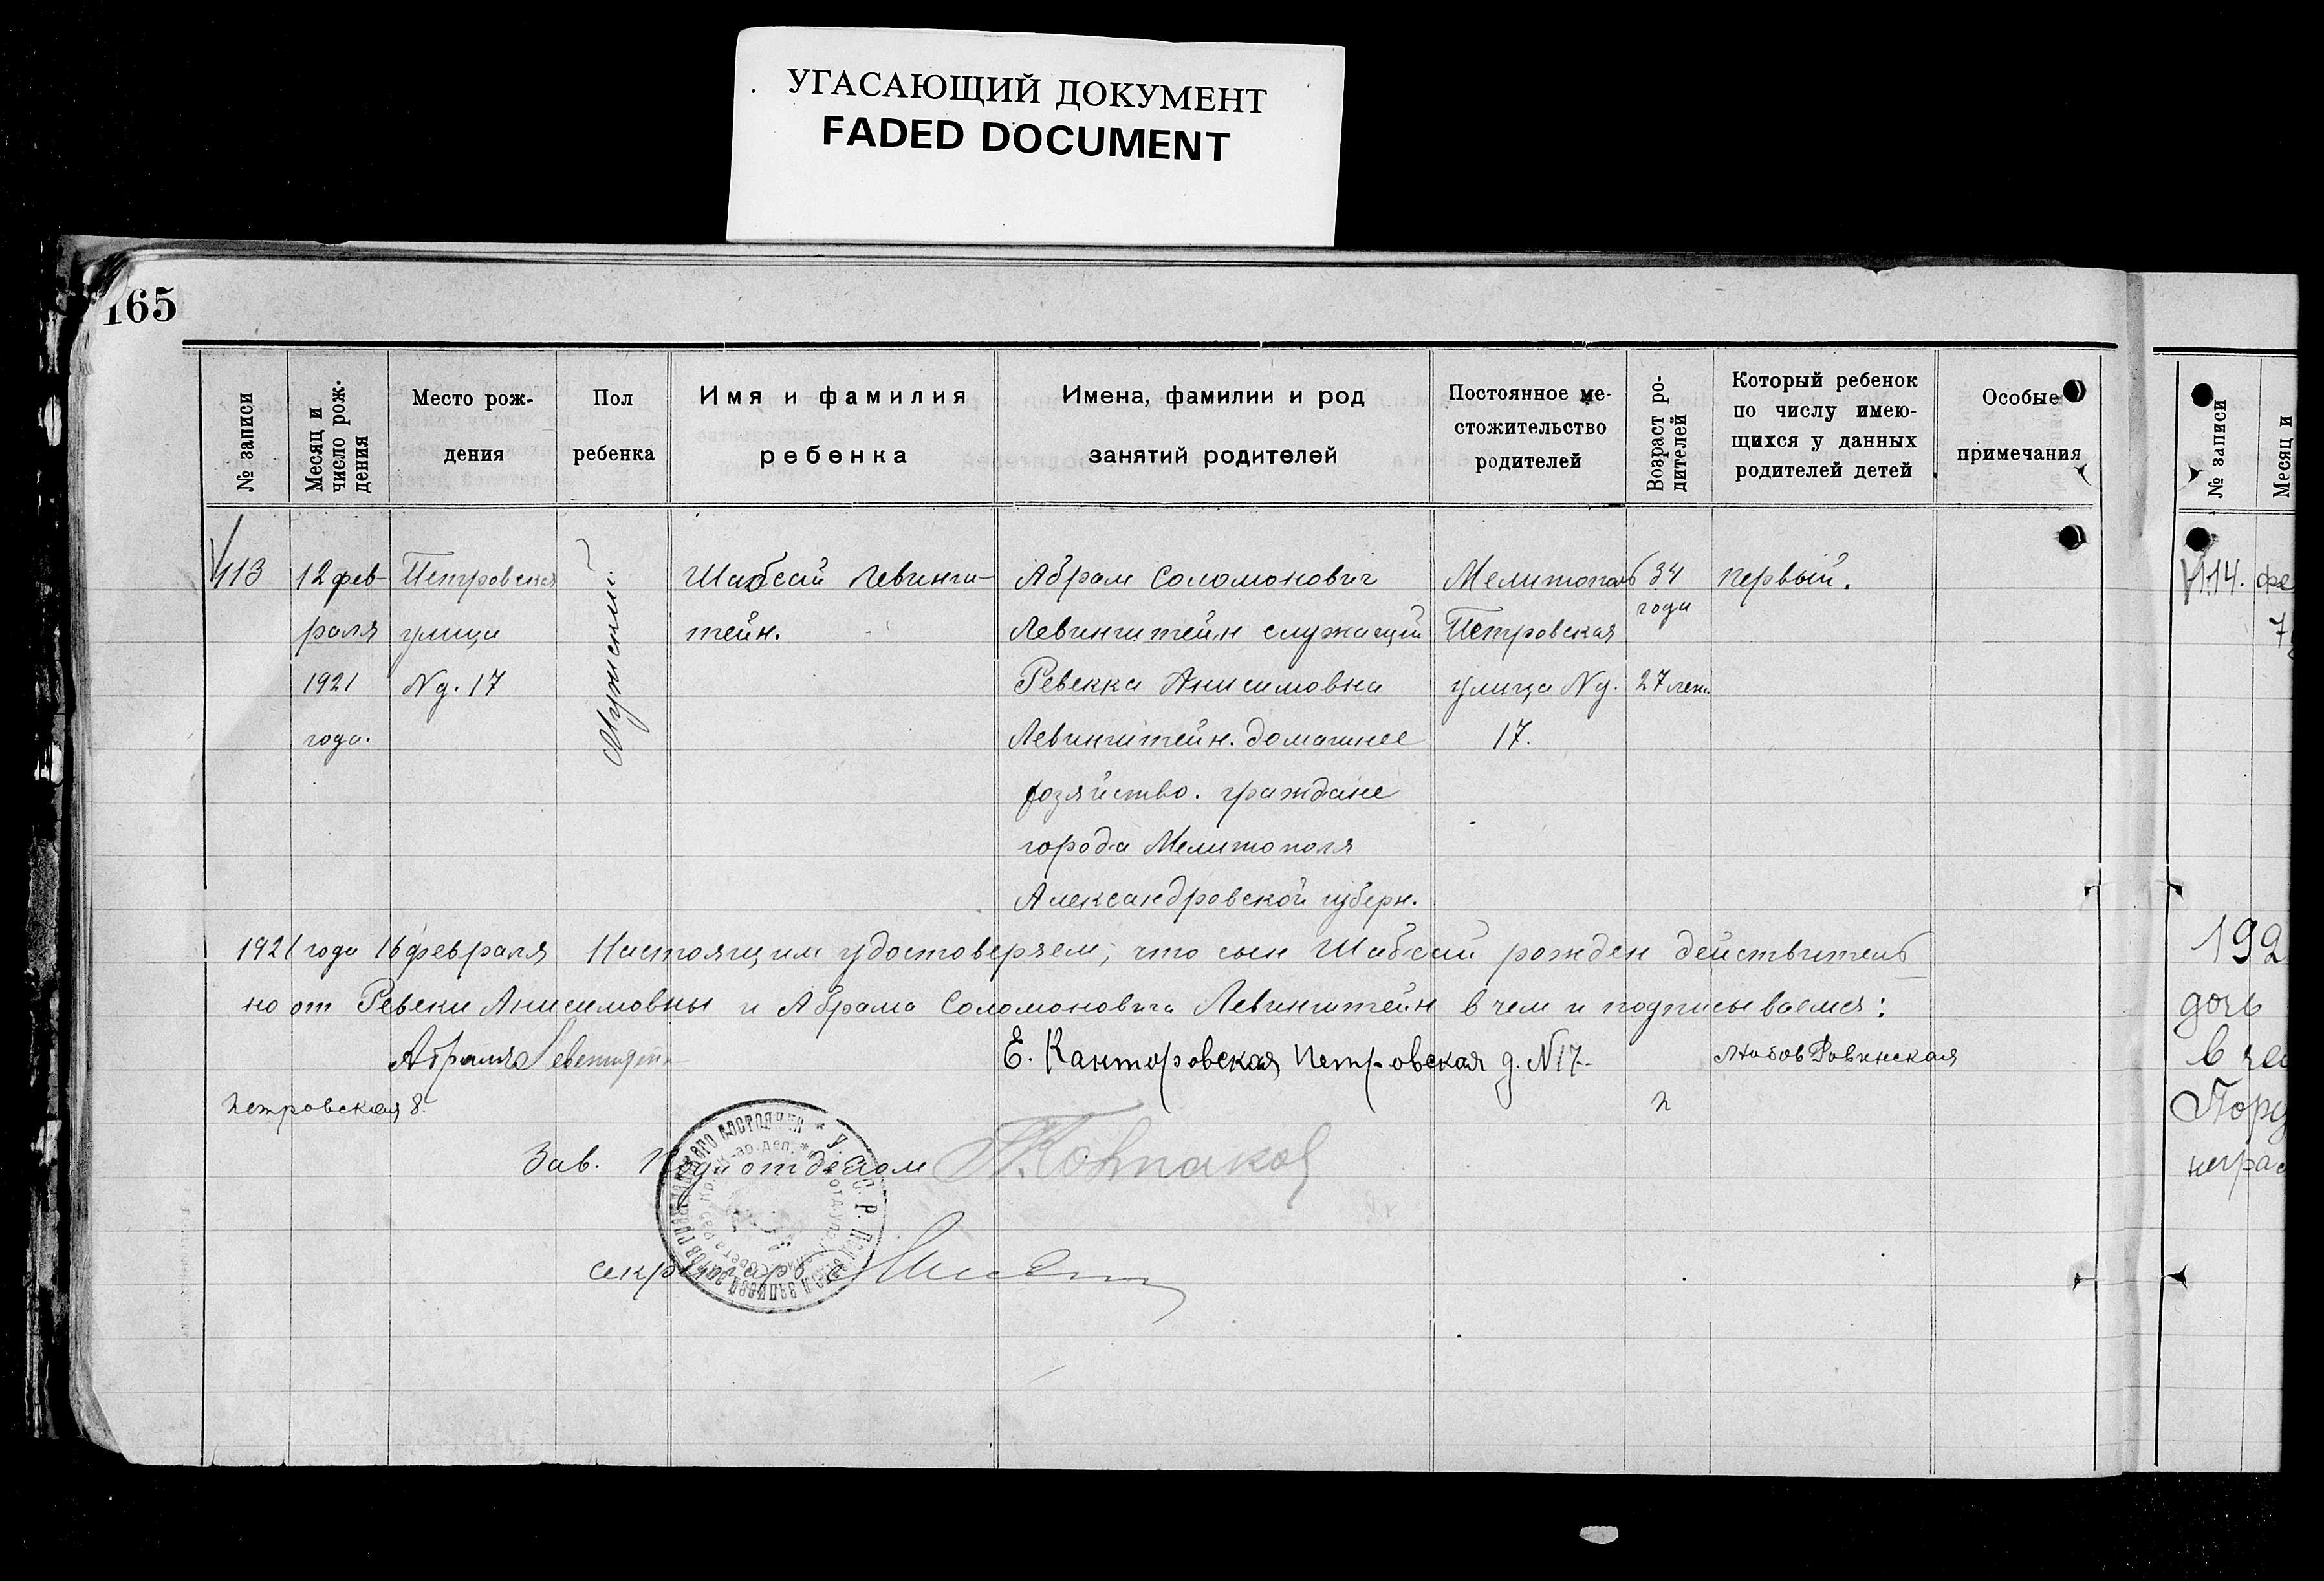 УГАСАЮЩИЙ ДОКУМЕНТ
FADED DOCUMENT
165
№ записи
Месяц и число рож-
дения
Место рож-
дения
Пол
ребенка
Имя и фамилия
ребенка
Имена, фамилии и род
занятий родителей
Постоянное ме-
стожительство
родителей
Возраст ро-
дителей
Который ребенок
по числу имею-
щихся у данных
родителей детей
Особые
примечания
113
12 фев-
раля
1921
года.
Петровская
улица
Nд. 17
Мужской
Шабсай Левинш-
тейн.
Абрам Соломонович
Левинштейн служащий
Ревекка Анисимовна
Левинштейн. домашнее
хозяйство. граждане
города Мелитополя
Александровской губерн.
Мелитополь
Петровская
улица Nд.
17.
34
года
27 лет.
первый.
1921 года 16 февраля Настоящим удостоверяем, что сын Шабсай рожден действитель
но от Ревеки Анисимовны и Абрама Соломоновича Левинштейн в чем и подписываемся:
Абрам Левинштейн
Е. Канторовская Петровская д. N17
Любовь Ровинская
Петровская 8.
Зав. Подотделом
секретарь
№ записи
Месяц и
114. фе
7
192
дочь
в чем